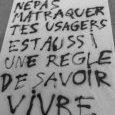 NE PAS
MATRAQUER
TES USAGERS
EST AUSSI
UNE RÈGLE
DE SAVOIR
VIVRE